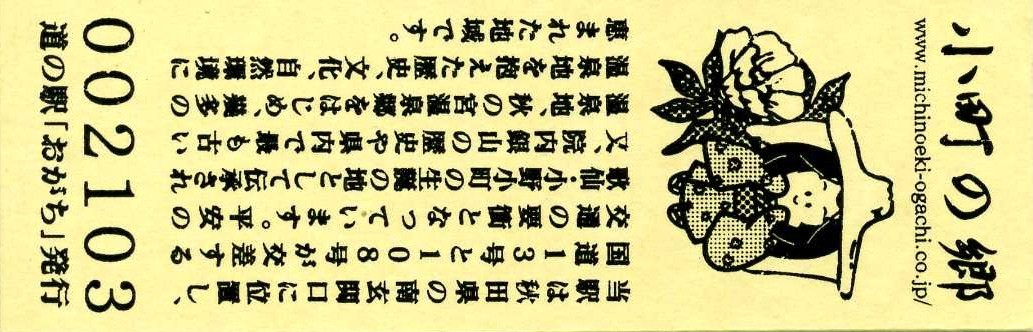 小町の郷
www.michinoeki-ogachi.co.jp/
当駅は秋田県の南玄関口に位置し、
国道13号と108号が交差する
交通の要衝となっています。平安の
歌仙・小野小町の生誕の地として伝承され
又、院内銀山の歴史や県内で最も古い
温泉地、秋の宮温泉郷をはじめ、幾多の
温泉地を抱えた歴史、文化、自然環境に
恵まれた地域です。
002103
道の駅「おがち」発行